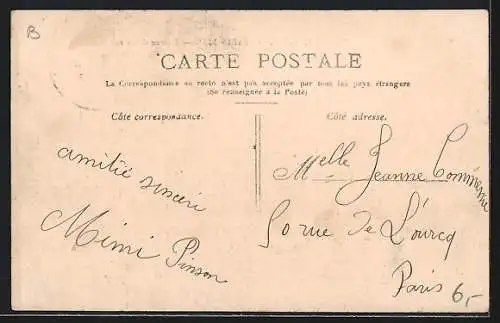 B
CARTE POSTALE
La Correspondance au recto n'est pas acceptée par tous les pays étrangers
(Se renseigner à la Poste)
Côté correspondance.
Côté adresse.
amitié sincère
Mimi Pinson
Melle Jeanne
50 rue de l'Ourcq
Paris
6,-